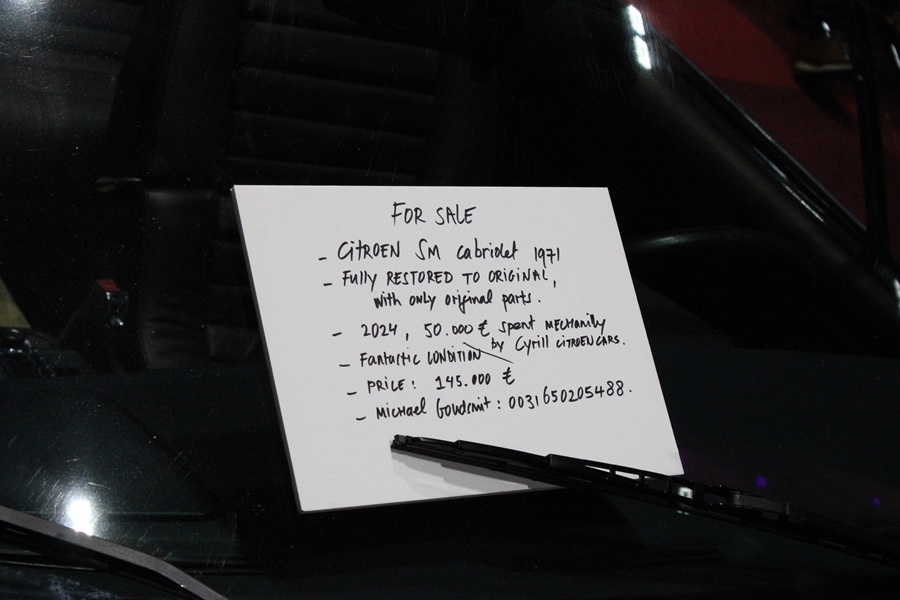 FOR SALE
- CITROEN SM Cabriolet 1971
- Fully RESTORED TO ORIGINAL,
with only original parts.
- 2024, 50.000 € spent MECHANILY
by Cyrill CITROENCARS.
- Fantastic CONDITION
- PRICE: 145.000 €
- MICHAEL Goudsmit: 0031650205488.